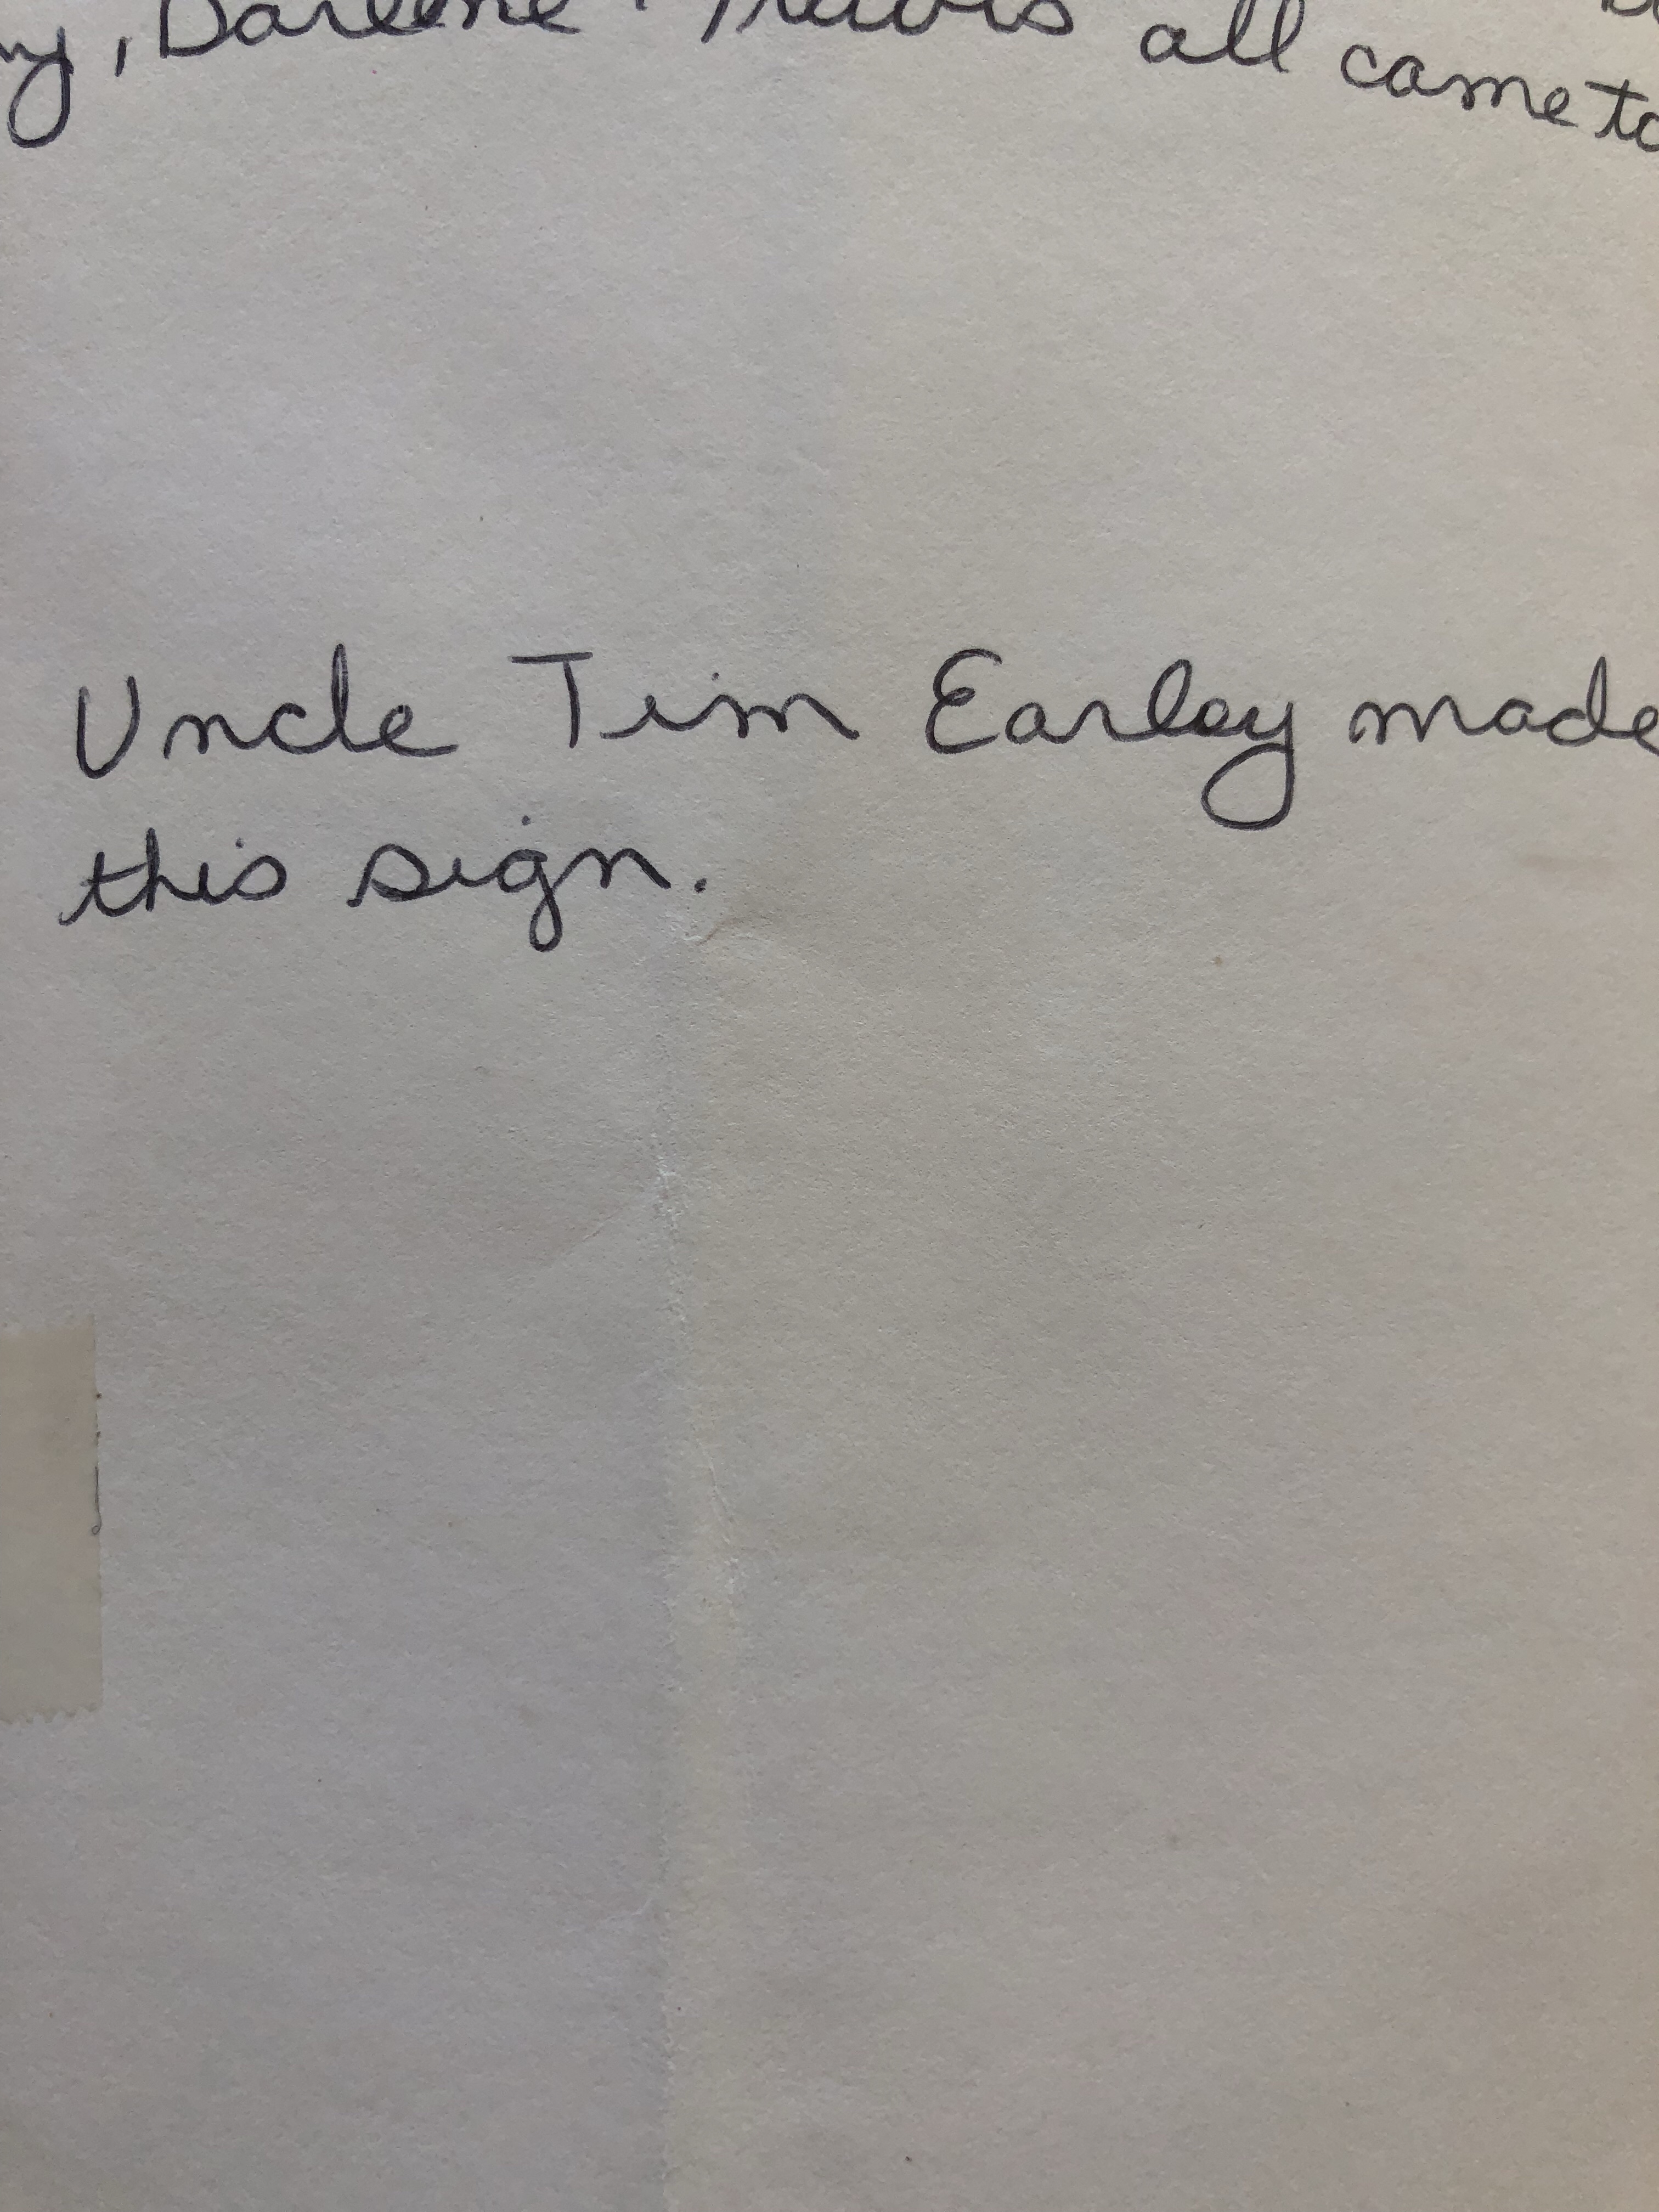 , Darlene Travis all came to
Uncle Tim Earley made
this sign.